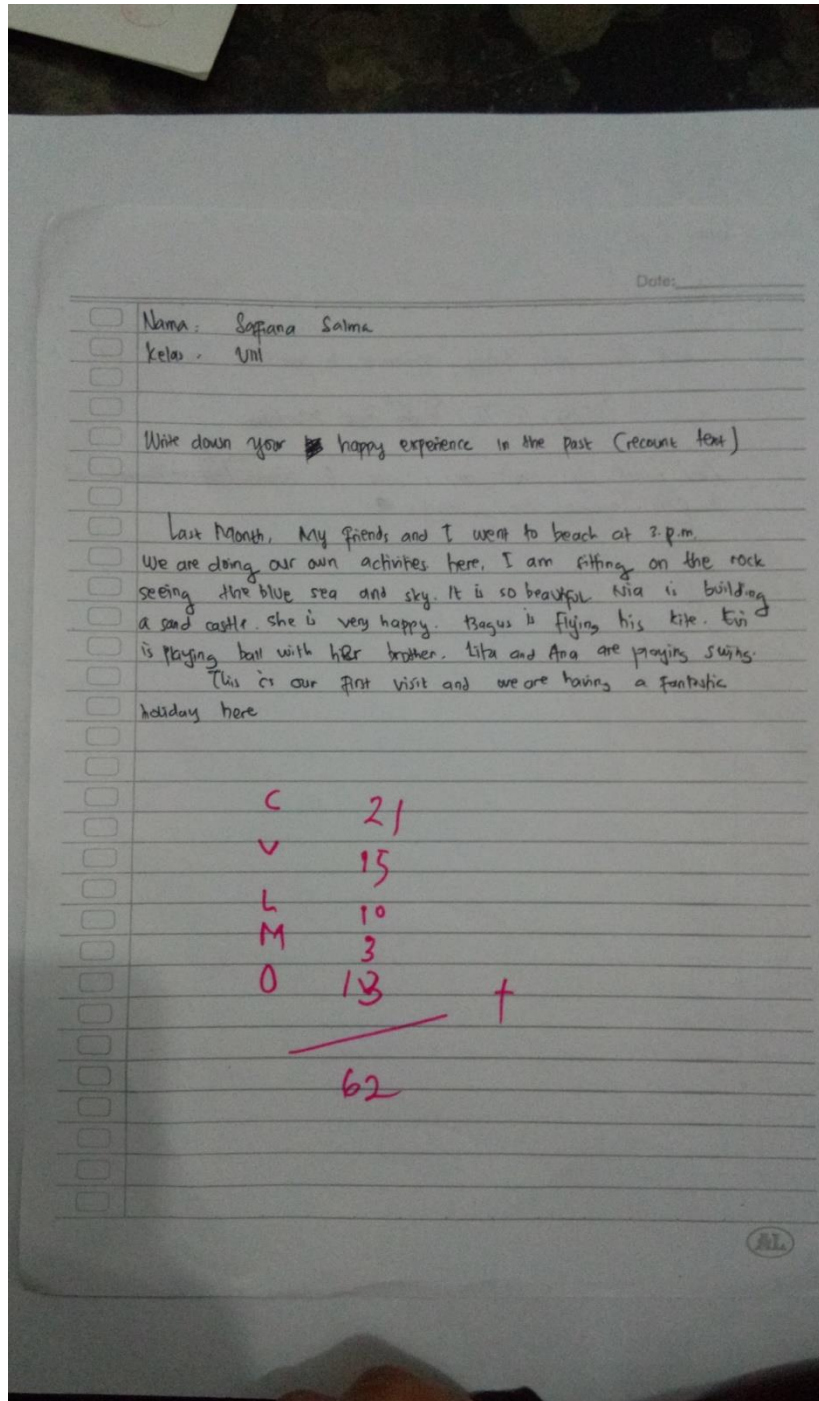 Date:
Nama: Soffiana Salma
Kelas: VIII
Write down your happy experience in the past (recount text)
Last Month, My friends and I went to beach at 3.p.m.
We are doing our own activities here. I am sitting on the rock
seeing the blue sea and sky. It is so beautiful Nia is building
a sand castle. she is very happy. Bagus is flying his kite. Evi
is playing ball with her brother. Lita and Ana are playing swing.
This is our first visit and we are having a fantastic
holiday here
C 21
V 15
L 10
M 3
O 13 +
62
AL